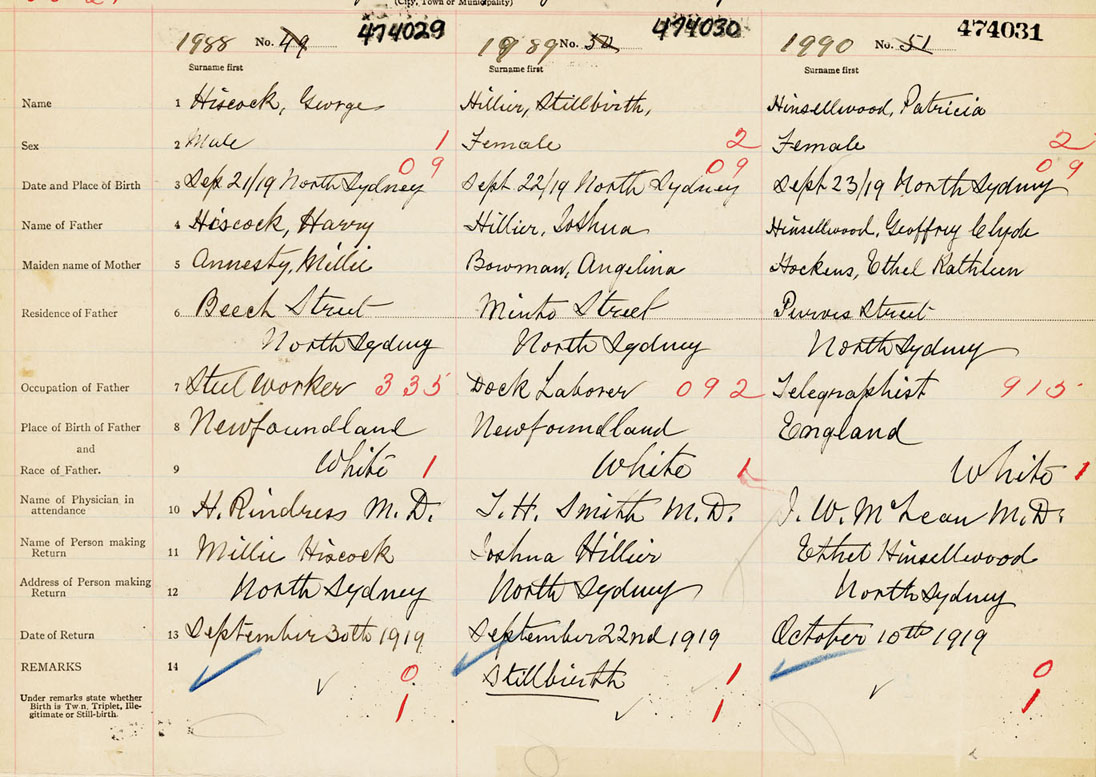 (City, Town or Municipality)
1988 No. 49 474029 1989 No. 50 474030 1990 No. 51 474031
Surname first Surname first Surname first
Name 1 Hiscock, George Hillier, Stillbirth, Hinsellwood, Patricia
Sex 2 Male 1 Female 2 Female 2
09 09 09
Date and Place of Birth 3 Sep 21/19 North Sydney Sept. 22/19 North Sydney Sept 23/19 North Sydney
Name of Father 4 Hiscock, Harry Hillier, Joshua Hinsellwood, Geoffrey Clyde
Maiden name of Mother 5 Annesty, Millie Bowman, Angelina Hockens, Ethel Kathleen
Residence of Father 6 Beech Street Minto Street Purves Street
North Sydney North Sydney North Sydney
Occupation of Father 7 Steel Worker 335 Dock Laborer 092 Telegraphist 915
Place of Birth of Father 8 Newfoundland Newfoundland England
and
Race of Father. 9 White 1 White 1 White 1
Name of Physician in
attendance 10 H. Rindress M.D. T.H. Smith M.D. J.W. McLean M.D.
Name of Person making
Return 11 Millie Hiscock Joshua Hillier Ethel Hinsellwood
Address of Person making
Return 12 North Sydney North Sydney North Sydney
Date of Return 13 September 30th 1919 September 22nd 1919 October 10th 1919
REMARKS 14 0 Stillbirth 1 0
Under remarks state whether
Birth is Twin, Triplet, Ille-
gitimate or Still-birth. 1 1 1